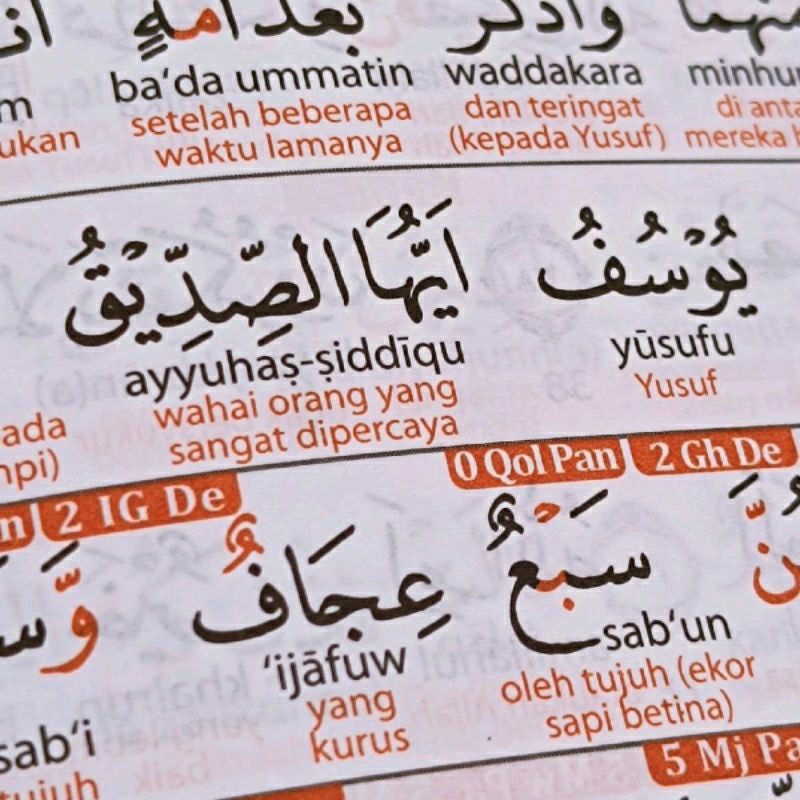 بَعْدَ اُمَّةٍ وَادَّكَرَ
ba‘da ummatin waddakara
setelah beberapa dan teringat di
waktu lamanya (kepada Yusuf) mereka
يُوْسُفُ اَيُّهَا الصِّدِّيْقُ
ayyuhaṣ-ṣiddīqu yūsufu
wahai orang yang Yusuf
sangat dipercaya
2 IG De 0 Qol Pan 2 Gh De
سَبْعٌ عِجَافٌ
‘ijāfuw sab‘un
yang oleh tujuh (ekor
kurus sapi betina)
sab‘i
tujuh 5 Mj